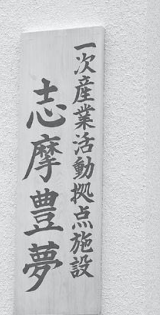 一次産業活動拠点施設
志摩豊夢